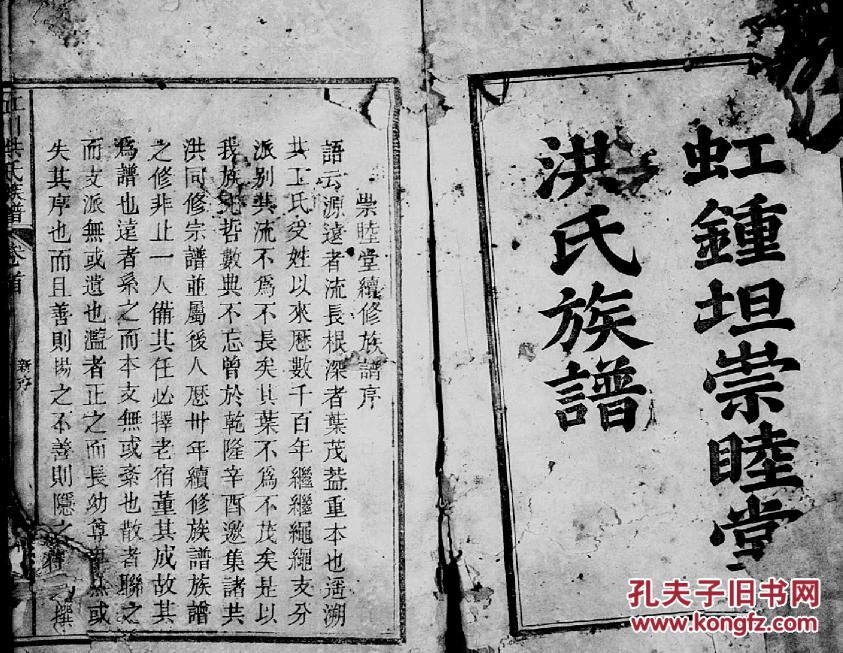 虹鍾坦崇睦堂
洪氏族譜
崇睦堂續修族譜序
語云源遠者流長根深者葉茂葢重本也遥溯
共工氏受姓以來歷數千百年繼繼繩繩支分
派别其流不為不長矣其葉不為不茂矣是以
我族先哲數典不忘曾於乾隆辛酉邀集諸共
洪同修宗譜並屬後人歷卅年續修族譜族譜
之修非止一人備其任必擇老宿董其成故其
為譜也遠者系之而本支無或紊也散者聯之
而支派無或遺也濫者正之而長幼尊卑無或
失其序也而且善則揚之不善則隱之
撰
洪氏族譜 卷首
新序
孔夫子旧书网
www.kongfz.com